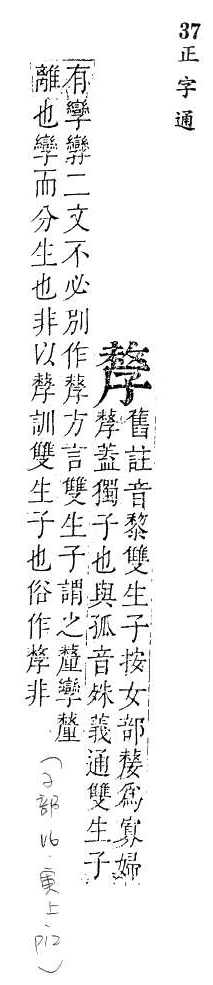 37
正字通
孷
舊註音黎雙生子按女部嫠爲寡婦
孷蓋獨子也與孤音殊義通雙生子
有孿二文不必別作孷方言雙生子謂之釐孿釐
離也孿而分生也非以孷訓雙生子也俗作孷非
(子部 V6.寅上.p12)